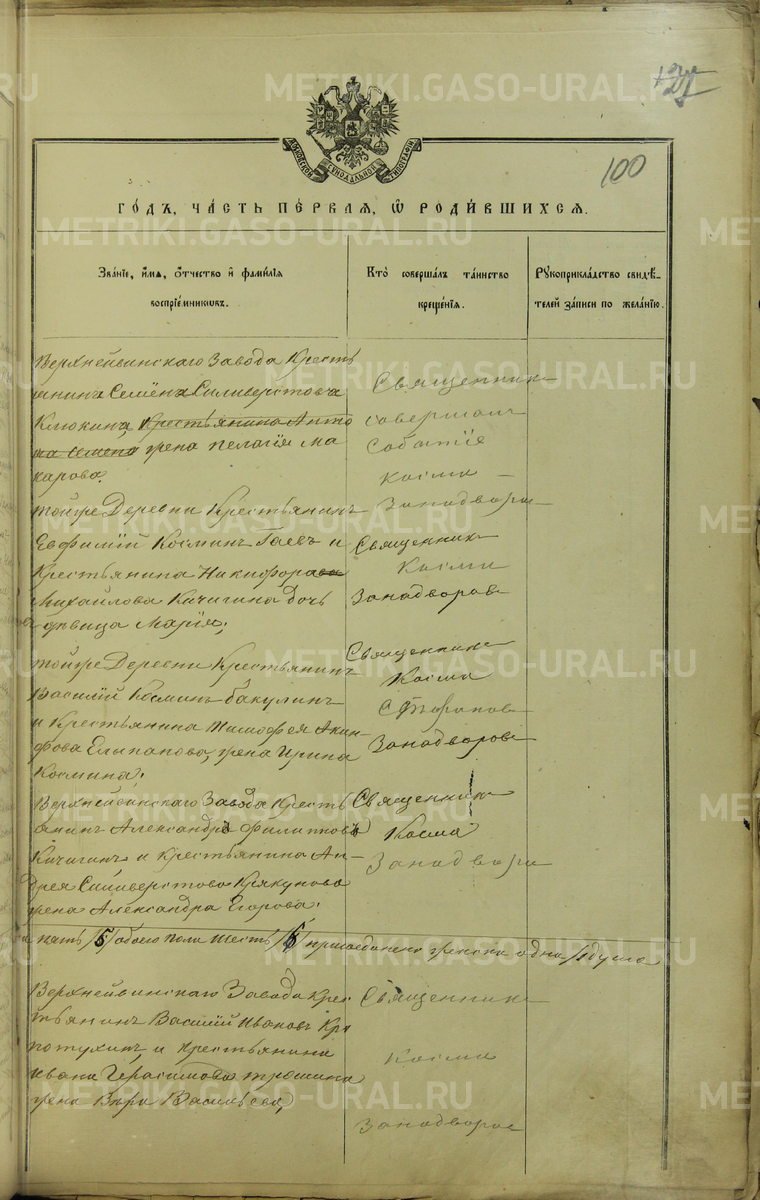 METRIKI.GASO-URAL.RU
100
МОСКОВСКОЙ СѴНОДАЛЬНОЙ ТИПОГРАФІИ
ГО́ДЪ, ЧА́СТЬ ПЕ́РВАЯ, Ѡ РОДИ́ВШИХСЯ.
Зва́ніе, и́мя, о́тчество и҆ фами́лія воспріе́мниковъ.
Кто̀ соверша́лъ та́инство креще́нія.
Рꙋкоприкла́дство свидѣ́телей за́писи по жела́нію.
Верхнейвинскаго Завода Кресть
янинъ Семёнъ Силиверстовъ
Клюкинъ, Крестьянина Анто
на Семена жена Пелагія Ма
карова.
Священник
совершал
Событіе
Косма
Западворов
тойже Деревни Крестьянинъ
Евфимій Косминъ Гаевъ и
Крестьянина Никифорова
Михайлова Кичигина дочь
дѣвица Марія;
Священник
Косма
Западворов
тойже Деревни Крестьянинъ
Василій Косминъ Бакулинъ
и Крестьянина Тимофея Акин-
фова Елыпанова, жена Ирина
Космина.
Священник
Косма
Западворов
Верхнейвинскаго Завода Кресть
янинъ Александръ Филипповъ
Кичигинъ и Крестьянина Ан-
дрея Силиверстова Крякунова
жена Александра Егорова.
Священник
Косма
Западворов
пять /5/ обоего пола шесть /6/ присоединено женска одна /1 душа
Верхнейвинскаго Завода Крес
тьянинъ Василій Ивановъ Кро
потухинъ, и Крестьянина
Ивана Герасимова Трошина
жена Вѣра Васильева,
Священник
Косма
Западворов